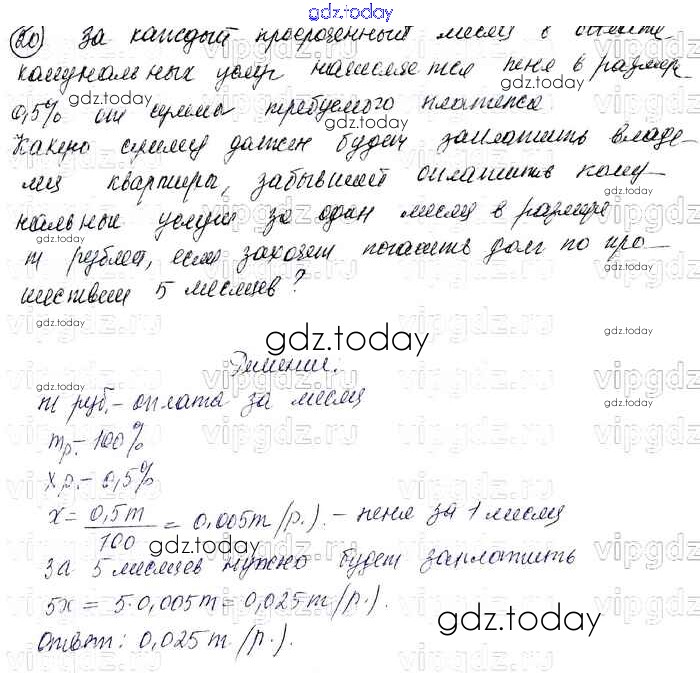 gdz.today
20) За каждый просроченный месяц в оплате
комунальных услуг начисляется пеня в размере
0,5% от суммы требуемого платежа
Какую сумму должен будет заплатить владе-
лец квартиры, забывший оплатить кому-
нальные услуги за один месяц в размере
m рублей, если захочет погасить долг по про-
шествии 5 месяцев?
gdz.today
Решение.
m руб. - оплата за месяц
m р. - 100%
x р. - 0,5%
x = 0,5m/100 = 0,005m (р.). - пеня за 1 месяц
за 5 месяцев нужно будет заплатить
5x = 5·0,005m = 0,025m (р.).
Ответ: 0,025m (р.).
gdz.today